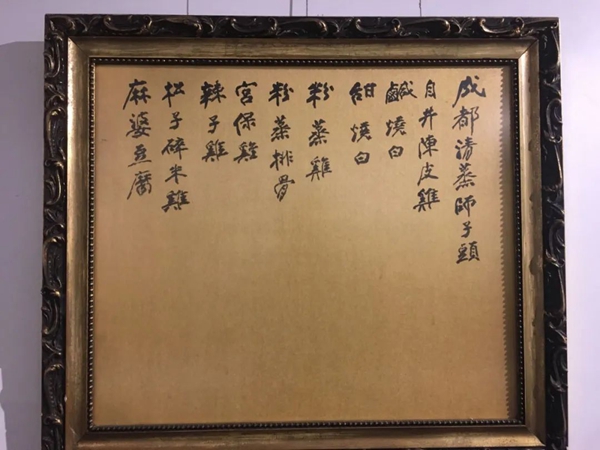 成都清蒸師子頭
自井陳皮雞
鹹燒白
甜燒白
粉蒸雞
粉蒸排骨
宮保雞
辣子雞
松子碎米雞
麻婆豆腐